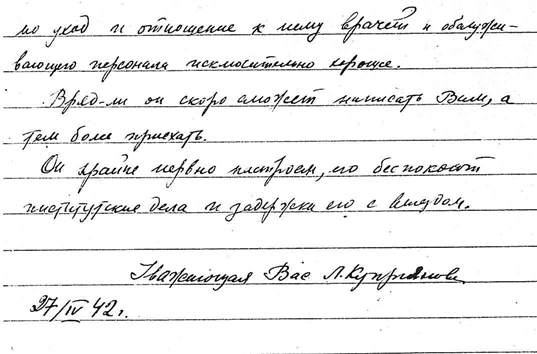 но уход и отношение к нему врачей и обслужи-
вающего персонала исключительно хорошее.
Вряд-ли он скоро сможет написать Вам, а
тем более приехать.
Он крайне нервно настроен, его беспокоят
институтские дела и задержки его с выездом.
Уважающая Вас Л. Куприянова
27/IV 42 г.